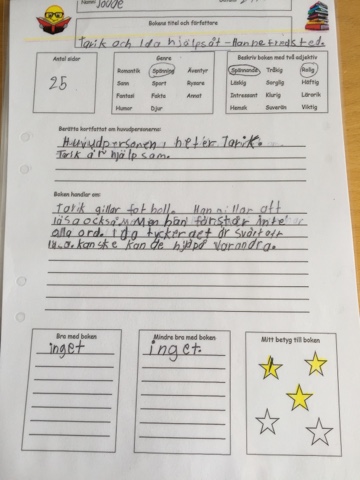 Namn: Jadde
Bokens titel och författare
Tarik och Ida hjälpsåt - Hanne Fredsted.
Antal sidor
25
Genre
Romantik Spänning Äventyr
Barn Sport Rysare
Fantasi Fakta Annat
Humor Djur
Beskriv boken med två adjektiv
Spännande Tråkig Rolig
Läskig Sorglig Häftig
Intressant Klurig Lärorik
Hemsk Suverän Viktig
Berätta kortfattat om huvudpersonerna:
Huvudpersonen i heter Tarik.
Tarik är hjälpsam.
Boken handlar om:
Tarik gillar fotboll. Han gillar att
läsa också. Men han förstår inte
alla ord. Ida tycker det är svårt att
kanske kan de hjälpa varandra.
Bra med boken
inget
Mindre bra med boken
inget.
Mitt betyg till boken